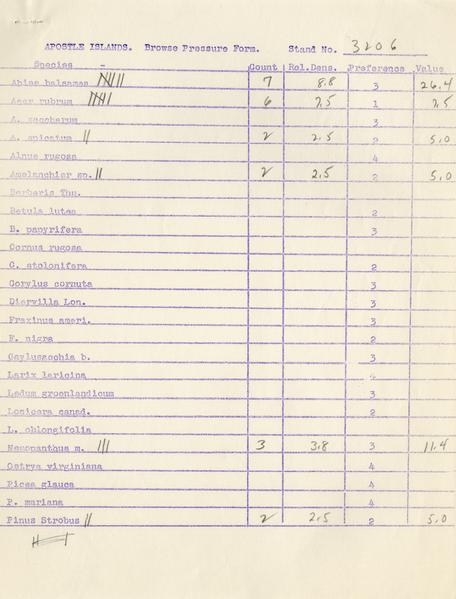 APOSTLE ISLANDS. Browse Pressure Form. Stand No. 3206
Species - Count Rel.Dens. Preference Value
Abies balsamea 7 8.8 3 26.4
Acer rubrum 6 7.5 1 7.5
A. saccharum 3
A. spicatum || 2 2.5 2 5.0
Alnus rugosa 4
Amelanchier sp. || 2 2.5 2 5.0
Berberis Thu.
Betula lutea 2
B. papyrifera 3
Cornus rugosa
C. stolonifera 2
Corylus cornuta 3
Diervilla Lon. 3
Fraxinus ameri. 3
F. nigra 2
Gaylussochia b. 3
Larix laricina 4
Ledum groenlandicum 3
Lonicera canad. 2
L. oblongifolia
Nemopanthus m. ||| 3 3.8 3 11.4
Ostrya virginiana 4
Picea glauca 4
P. mariana 4
Pinus Strobus || 2 2.5 2 5.0